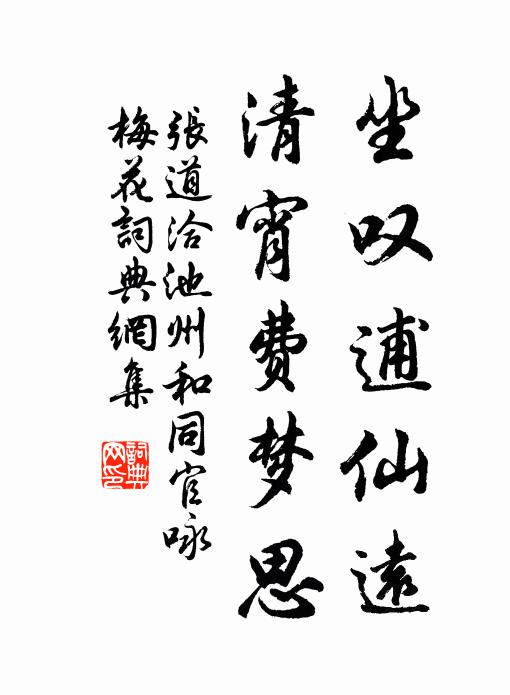 坐叹逋仙远
清宵费梦思
張道洽池州和同官咏
梅花詞典網集
詞典网印